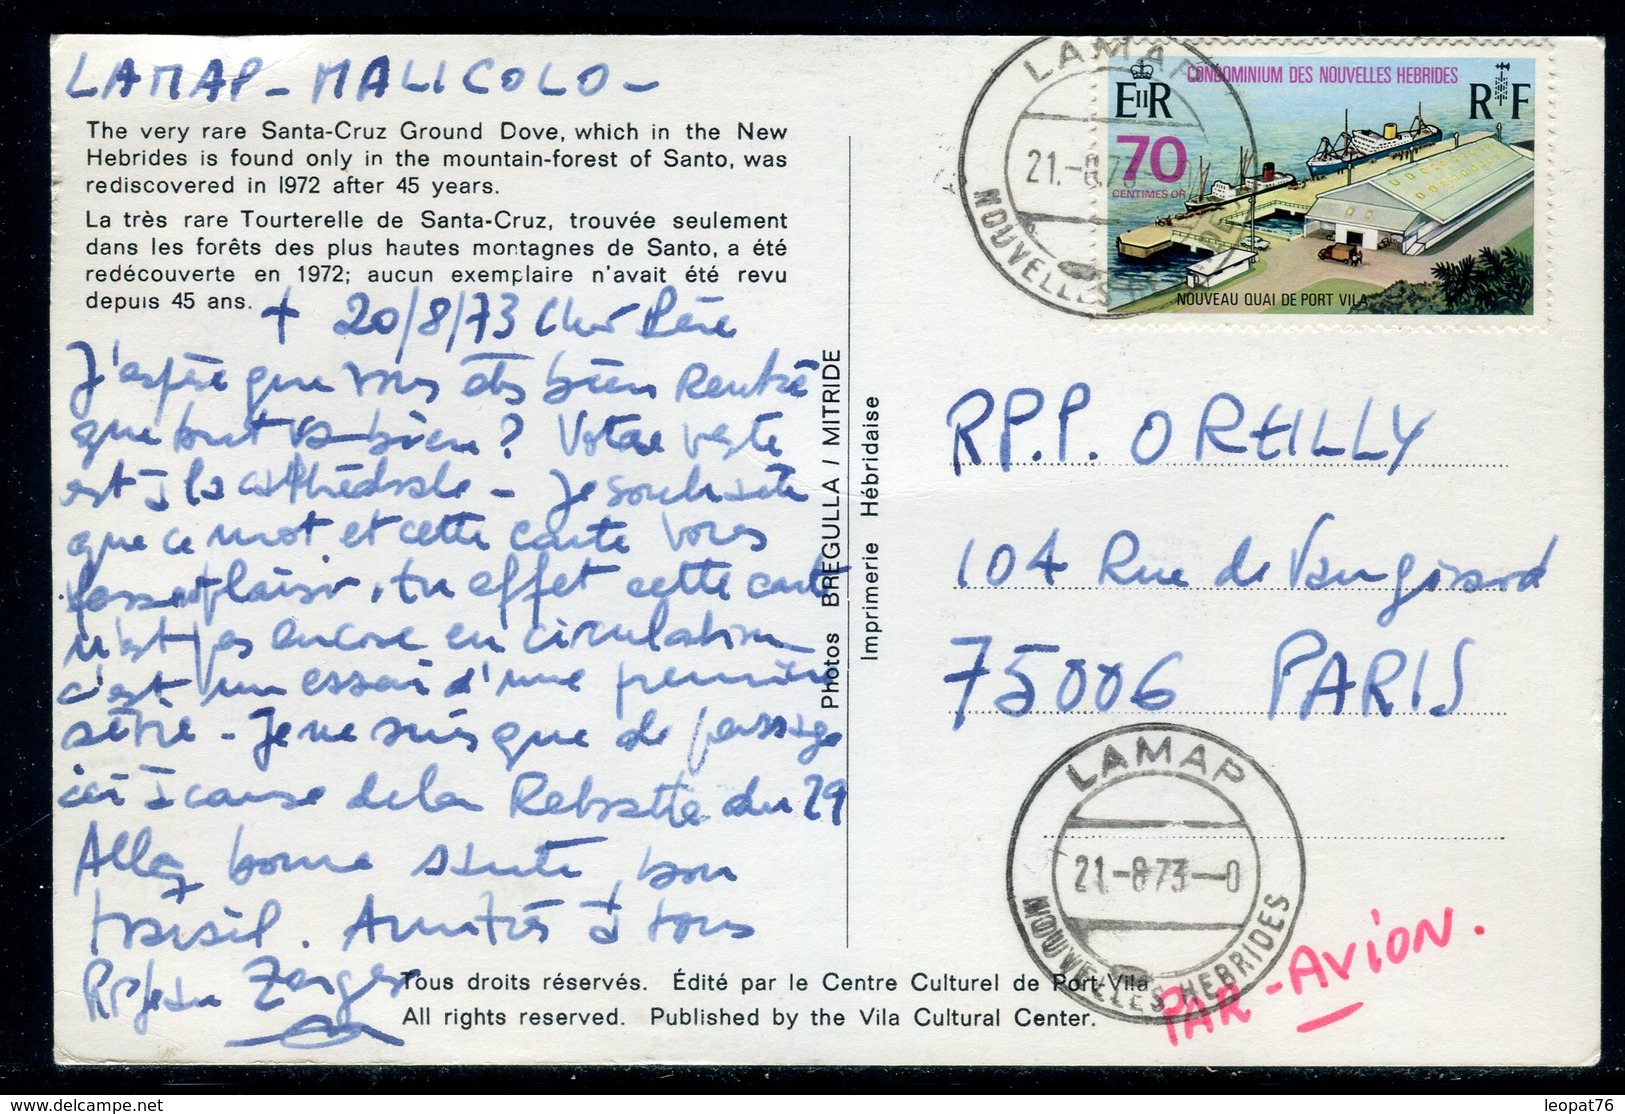 LAMAP - MALICOLO -
The very rare Santa-Cruz Ground Dove, which in the New
Hebrides is found only in the mountain-forest of Santo, was
rediscovered in 1972 after 45 years.
La très rare Tourterelle de Santa-Cruz, trouvée seulement
dans les forêts des plus hautes montagnes de Santo, a été
redécouverte en 1972; aucun exemplaire n'avait été revu
depuis 45 ans.
+ 20/8/73 Cher Père
J'espère que vous êtes bien rentré
que tout va bien? Votre veste
est à la cathédrale - Je souhaite
que ce mot et cette carte vous
fasse plaisir, en effet cette carte
n'est pas encore en circulation
c'est un essai d'une première
série - Je ne suis que de passage
ici à cause de la Retraite du 29
Allez bonne santé, bon
travail. Amitiés à tous
RP Jean Zerger
Tous droits réservés. Édité par le Centre Culturel de Port-Vila
All rights reserved. Published by the Vila Cultural Center.
Photos BREGULLA / MITRIDE
Imprimerie Hébridaise
LAMAP
21.-8.73
NOUVELLES HEBRIDES
CONDOMINIUM DES NOUVELLES HEBRIDES
EIIR
RF
70
CENTIMES OR
NOUVEAU QUAI DE PORT VILA
RP.P. OREILLY
104 Rue de Vaugirard
75006 PARIS
LAMAP
21-8-73-0
NOUVELLES HEBRIDES
PAR-AVION.
delcampe.net
leopat76